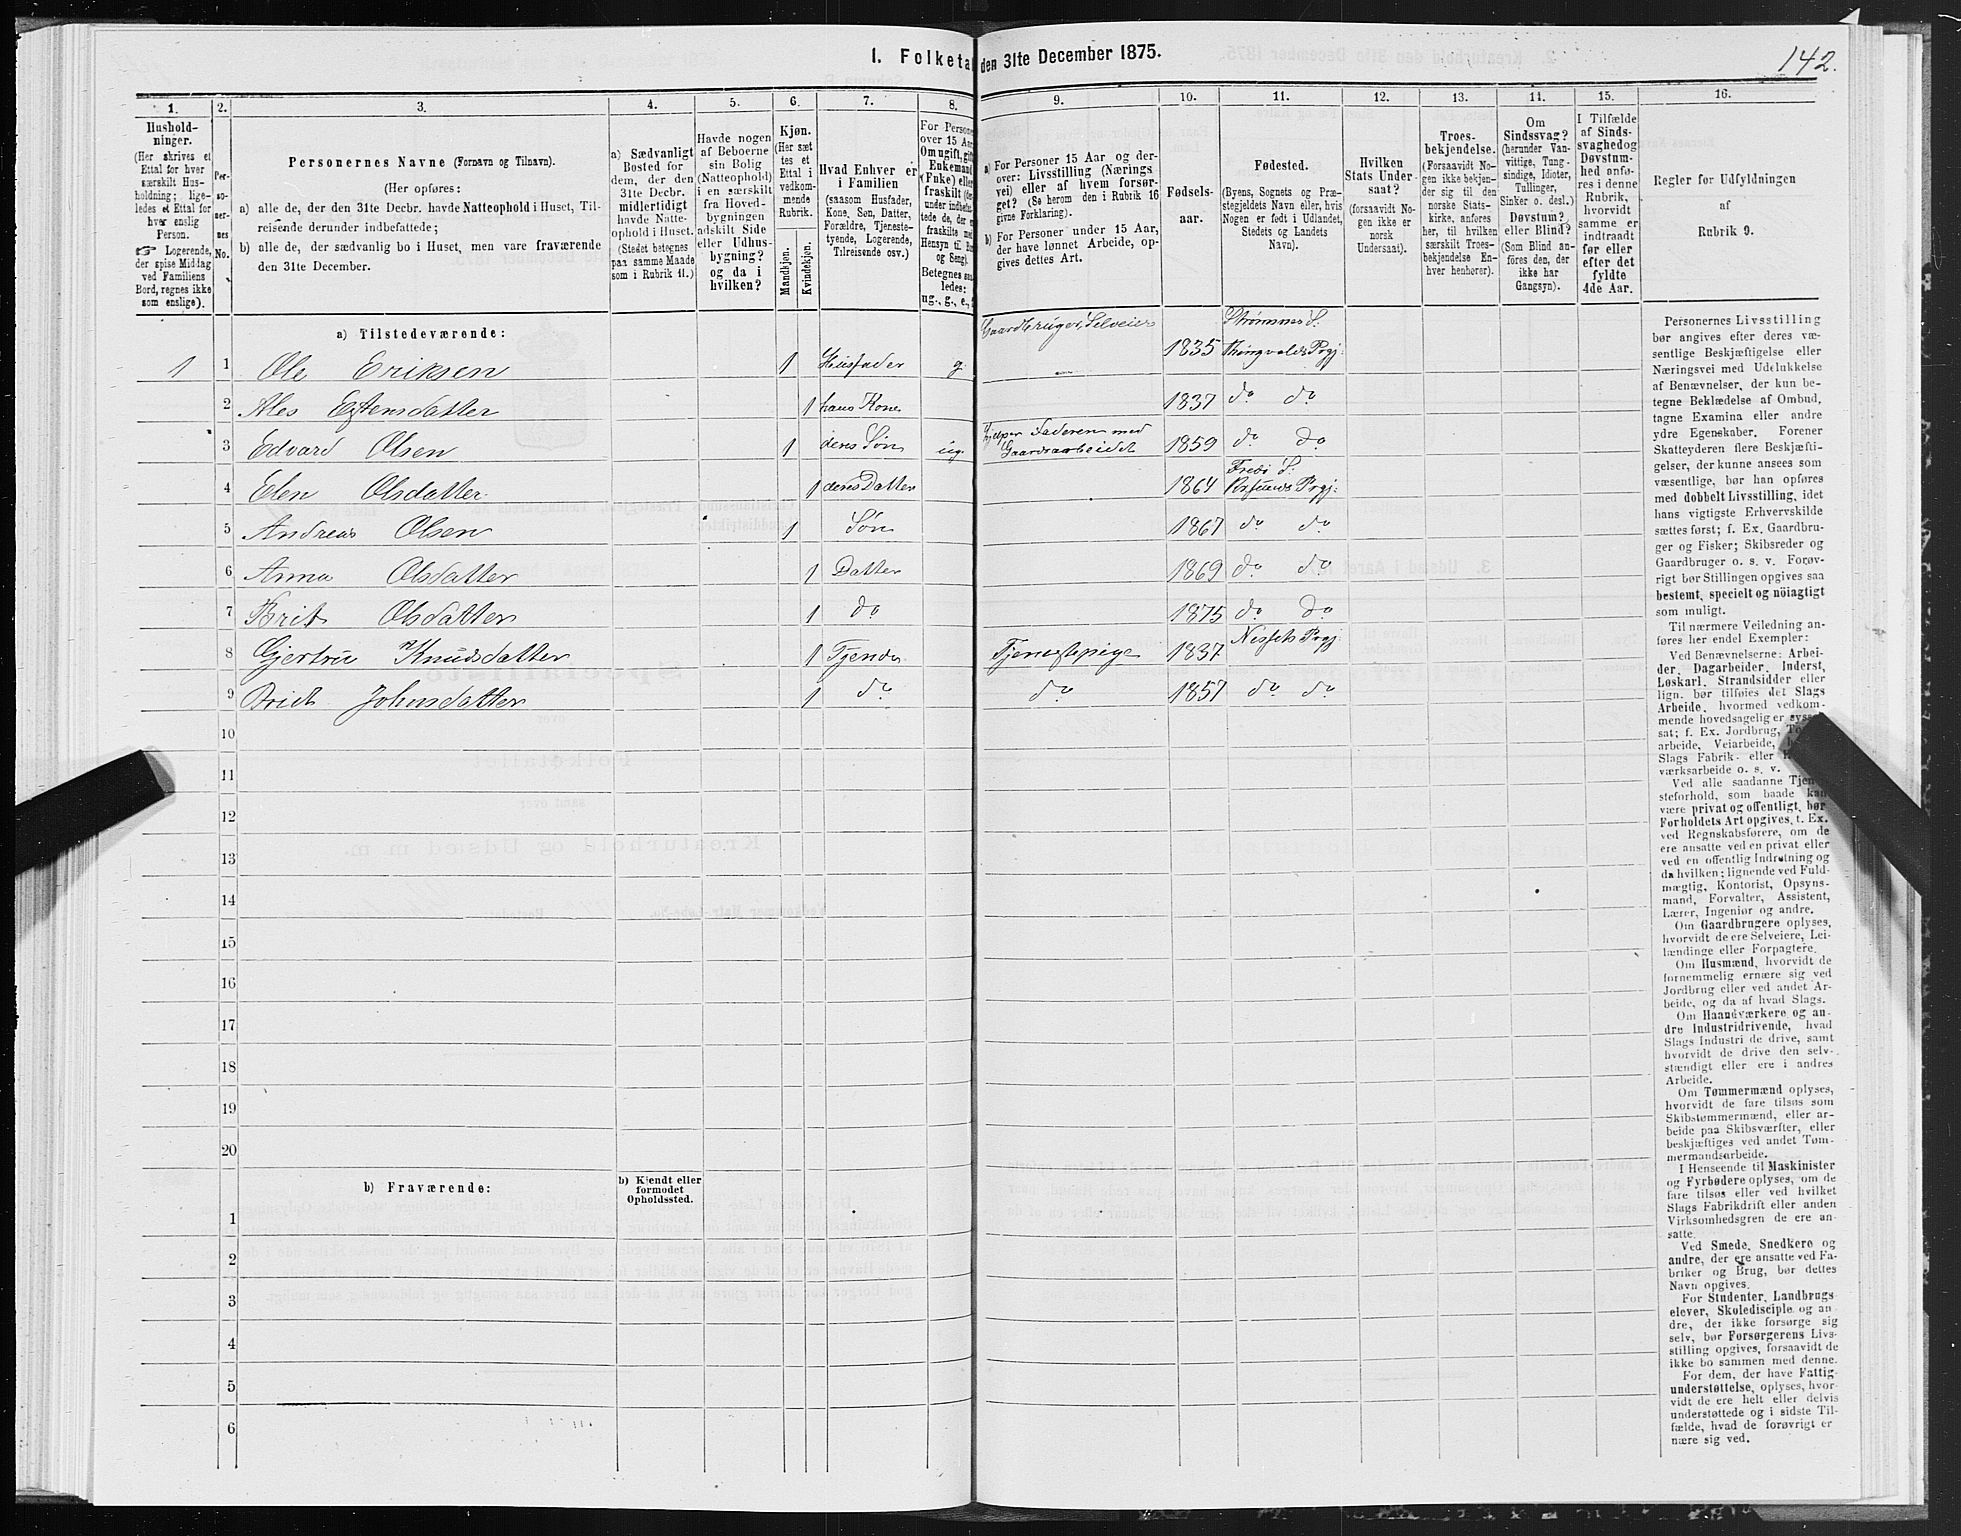 142.
1. Folketal den 31te December 1875.
1. 2. 3. 4. 5. 6. 7. 8. 9. 10. 11. 12. 13. 14. 15. 16.
Hushold-
ninger.
(Her skrives et
Ettal for hver
særskilt Hus-
holdning; lige-
ledes et Ettal for
hver enslig
Person.
☞ Logerende,
der spise Middag
ved Familiens
Bord, regnes ikke
som enslige).
Per-
so-
ner-
nes
No.
Personernes Navne (Fornavn og Tilnavn).
(Her opføres:
a) alle de, der den 31te Decbr. havde Natteophold i Huset, Til-
reisende derunder indbefattede;
b) alle de, der sædvanlig bo i Huset, men vare fraværende
den 31te December.
a) Sædvanligt
Bosted for
dem, der den
31te Decbr.
midlertidigt
havde Natte-
ophold i Huset.
(Stedet betegnes
paa samme Maade
som i Rubrik 11.)
Havde nogen
af Beboerne
sin Bolig
(Natteophold)
i en særskilt
fra Hoved-
bygningen
adskilt Side
eller Udhus-
bygning?
og da i
hvilken?
Kjøn.
(Her sæt
tes et
Ettal i
vedkom-
mende
Rubrik.
Mandkjøn.
Kvindekjøn.
Hvad Enhver er
i Familien
(saasom Husfader,
Kone, Søn, Datter,
Forældre, Tjeneste-
tyende, Logerende,
Tilreisende osv.)
For Persone
over 15 Aar
Om ugift, gift
Enkemand
(Enke) elle
fraskilt (de
under indbefat
tede de, der e
fraskilte med
Hensyn til Bo
og Seng).
Betegnes saa
ledes:
ug., g., e.,
a) For Personer 15 Aar og der-
over: Livsstilling (Nærings
vei) eller af hvem forsør-
get? (Se herom den i Rubrik 16
givne Forklaring).
b) For Personer under 15 Aar,
der have lønnet Arbeide, op-
gives dettes Art.
Fødsels-
aar.
Fødested.
(Byens, Sognets og Præ-
stegjeldets Navn eller, hvis
Nogen er født i Udlandet,
Stedets og Landets
Navn).
Hvilken
Stats Under
saat?
(forsaavidt No-
gen ikke er
norsk
Undersaat).
Troes-
bekjendelse.
(Forsaavidt No-
gen ikke bekjen-
der sig til den
norske Stats-
kirke, anføres
her, til hvilken
særskilt Troes-
bekjendelse En-
hver henhører).
Om
Sindssvag?
(herunder Van-
vittige, Tung-
sindige, Idioter,
Tullinger,
Sinker o. desl.)
Døvstum?
eller Blind?
(Som Blind an-
føres den, der
ikke har
Gangsyn).
I Tilfælde
af Sinds-
svaghed og
Døvstum-
hed anfø-
res i denne
Rubrik,
hvorvidt
samme er
indtraadt
før eller
efter det
fyldte
4de Aar.
Regler for Udfyldningen
af
Rubrik 9.
a) Tilstedeværende:
1 1 Ole Eriksen 1 Husfader g. Gaardbruger, Selveier 1835 Strømnes S. Thingvolds Prgj:
2 Ales Estensdatter 1 hans Kone 1837 do do
3 Edvard Olsen 1 deres Søn ug. hjelper Faderen med Gaardsarbeidet 1859 do do
4 Elen Olsdatter 1 deres Datter 1864 Fredø S: Prgj:
5 Andreas Olsen 1 Søn 1867 do do
6 Anna Olsdatter 1 Datter 1869 do do
7 Brit Olsdatter 1 do 1875 do do
8 Gjertru Knudsdatter 1 Tjende Tjenestepige 1837 Nessets Prgj:
9 Brit Johnsdatter 1 do do 1857 do do
10
11
12
13
14
15
16
17
18
19
20
b) Fraværende:
b) Kjendt eller
formodet
Opholdssted.
1
2
3
4
5
6
Personernes Livsstilling
bør angives efter deres væ-
sentlige Beskjæftigelse eller
Næringsvei med Udelukkelse
af Benævnelser, der kun be-
tegne Beklædelse af Ombud,
tagne Examina eller andre
ydre Egenskaber. Forener
Skatteyderen flere Beskjæfti-
gelser, der kunne ansees som
væsentlige, bør han opføres
med dobbelt Livsstilling, idet
hans vigtigste Erhvervskilde
sættes først; f. Ex. Gaardbru-
ger og Fisker; Skibsreder og
Gaardbruger o. s. v. Forøv-
rigt bør Stillingen opgives saa
bestemt, specielt og nöiagtigt
som muligt.
Til nærmere Veiledning an-
føres her endel Exempler:
Ved Benævnelserne: Arbei-
der, Dagarbeider, Inderst,
Løskarl, Strandsidder eller
lign. bør tilføies det Slags
Arbeide, hvormed vedkom-
mende hovedsagelig er syssel
sat; f. Ex. Jordbrug,
arbeide, Veiarbeide,
Slags Fabrik- eller
værksarbeide o. s. v.
Ved alle saadanne Tjen
steforhold, som baade kan
være privat og offentligt, bør
Forholdets Art opgives, t. Ex.
ved Regnskabsførere, om de
ere ansatte ved en privat eller
ved en offentlig Indretning og
da hvilken; lignende ved Fuld-
mægtig, Kontorist, Opsyns-
mand, Forvalter, Assistent,
Lærer, Ingeniør og andre.
Om Gaardbrugere oplyses,
hvorvidt de ere Selveiere, Lei-
lændinge eller Forpagtere.
Om Husmænd, hvorvidt de
fornemmelig ernære sig ved
Jordbrug eller ved andet Ar-
beide, og da af hvad Slags.
Om Haandværkere og an-
dre Industridrivende, hvad
Slags Industri de drive, samt
hvorvidt de drive den selv-
stændigt eller ere i andres
Arbeide.
Om Tømmermænd oplyses,
hvorvidt de fare tilsøs som
Skibstømmermænd, eller ar-
beide paa Skibsværfter, eller
beskjæftiges ved andet Tøm-
mermandsarbeide.
I Henseende til Maskinister
og Fyrbødere oplyses, om de
fare tilsøs eller ved hvilket
Slags Fabrikdrift eller anden
Virksomhedsgren de ere an-
satte.
Ved Smede, Snedkere og
andre, der ere ansatte ved Fa-
briker og Brug, bør dettes
Navn opgives.
For Studenter, Landbrugs
elever, Skoledisciple og an
dre, der ikke forsørge sig
selv, bør Forsørgerens Livs-
stilling opgives, forsaavidt de
ikke bo sammen med denne.
For dem, der have Fattig-
understøttelse, oplyses, hvor-
vidt de ere helt eller delvis
understøttede og i sidste Til-
fælde, hvad de forøvrigt er
nære sig ved.